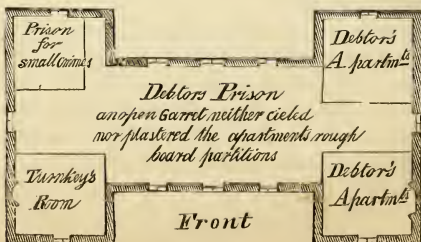 Prison
for
small Crimes
Debtor's
Apartmts
Debtors Prison
an open Garret neither cieled
nor plastered the apartments rough
board partitions
Turnkey's
Room
Debtor's
Apartmts
Front